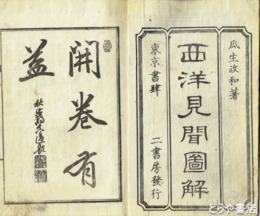 瓜生政和著
西洋見聞圖解
東京書肆 二書房發行
開卷有
益